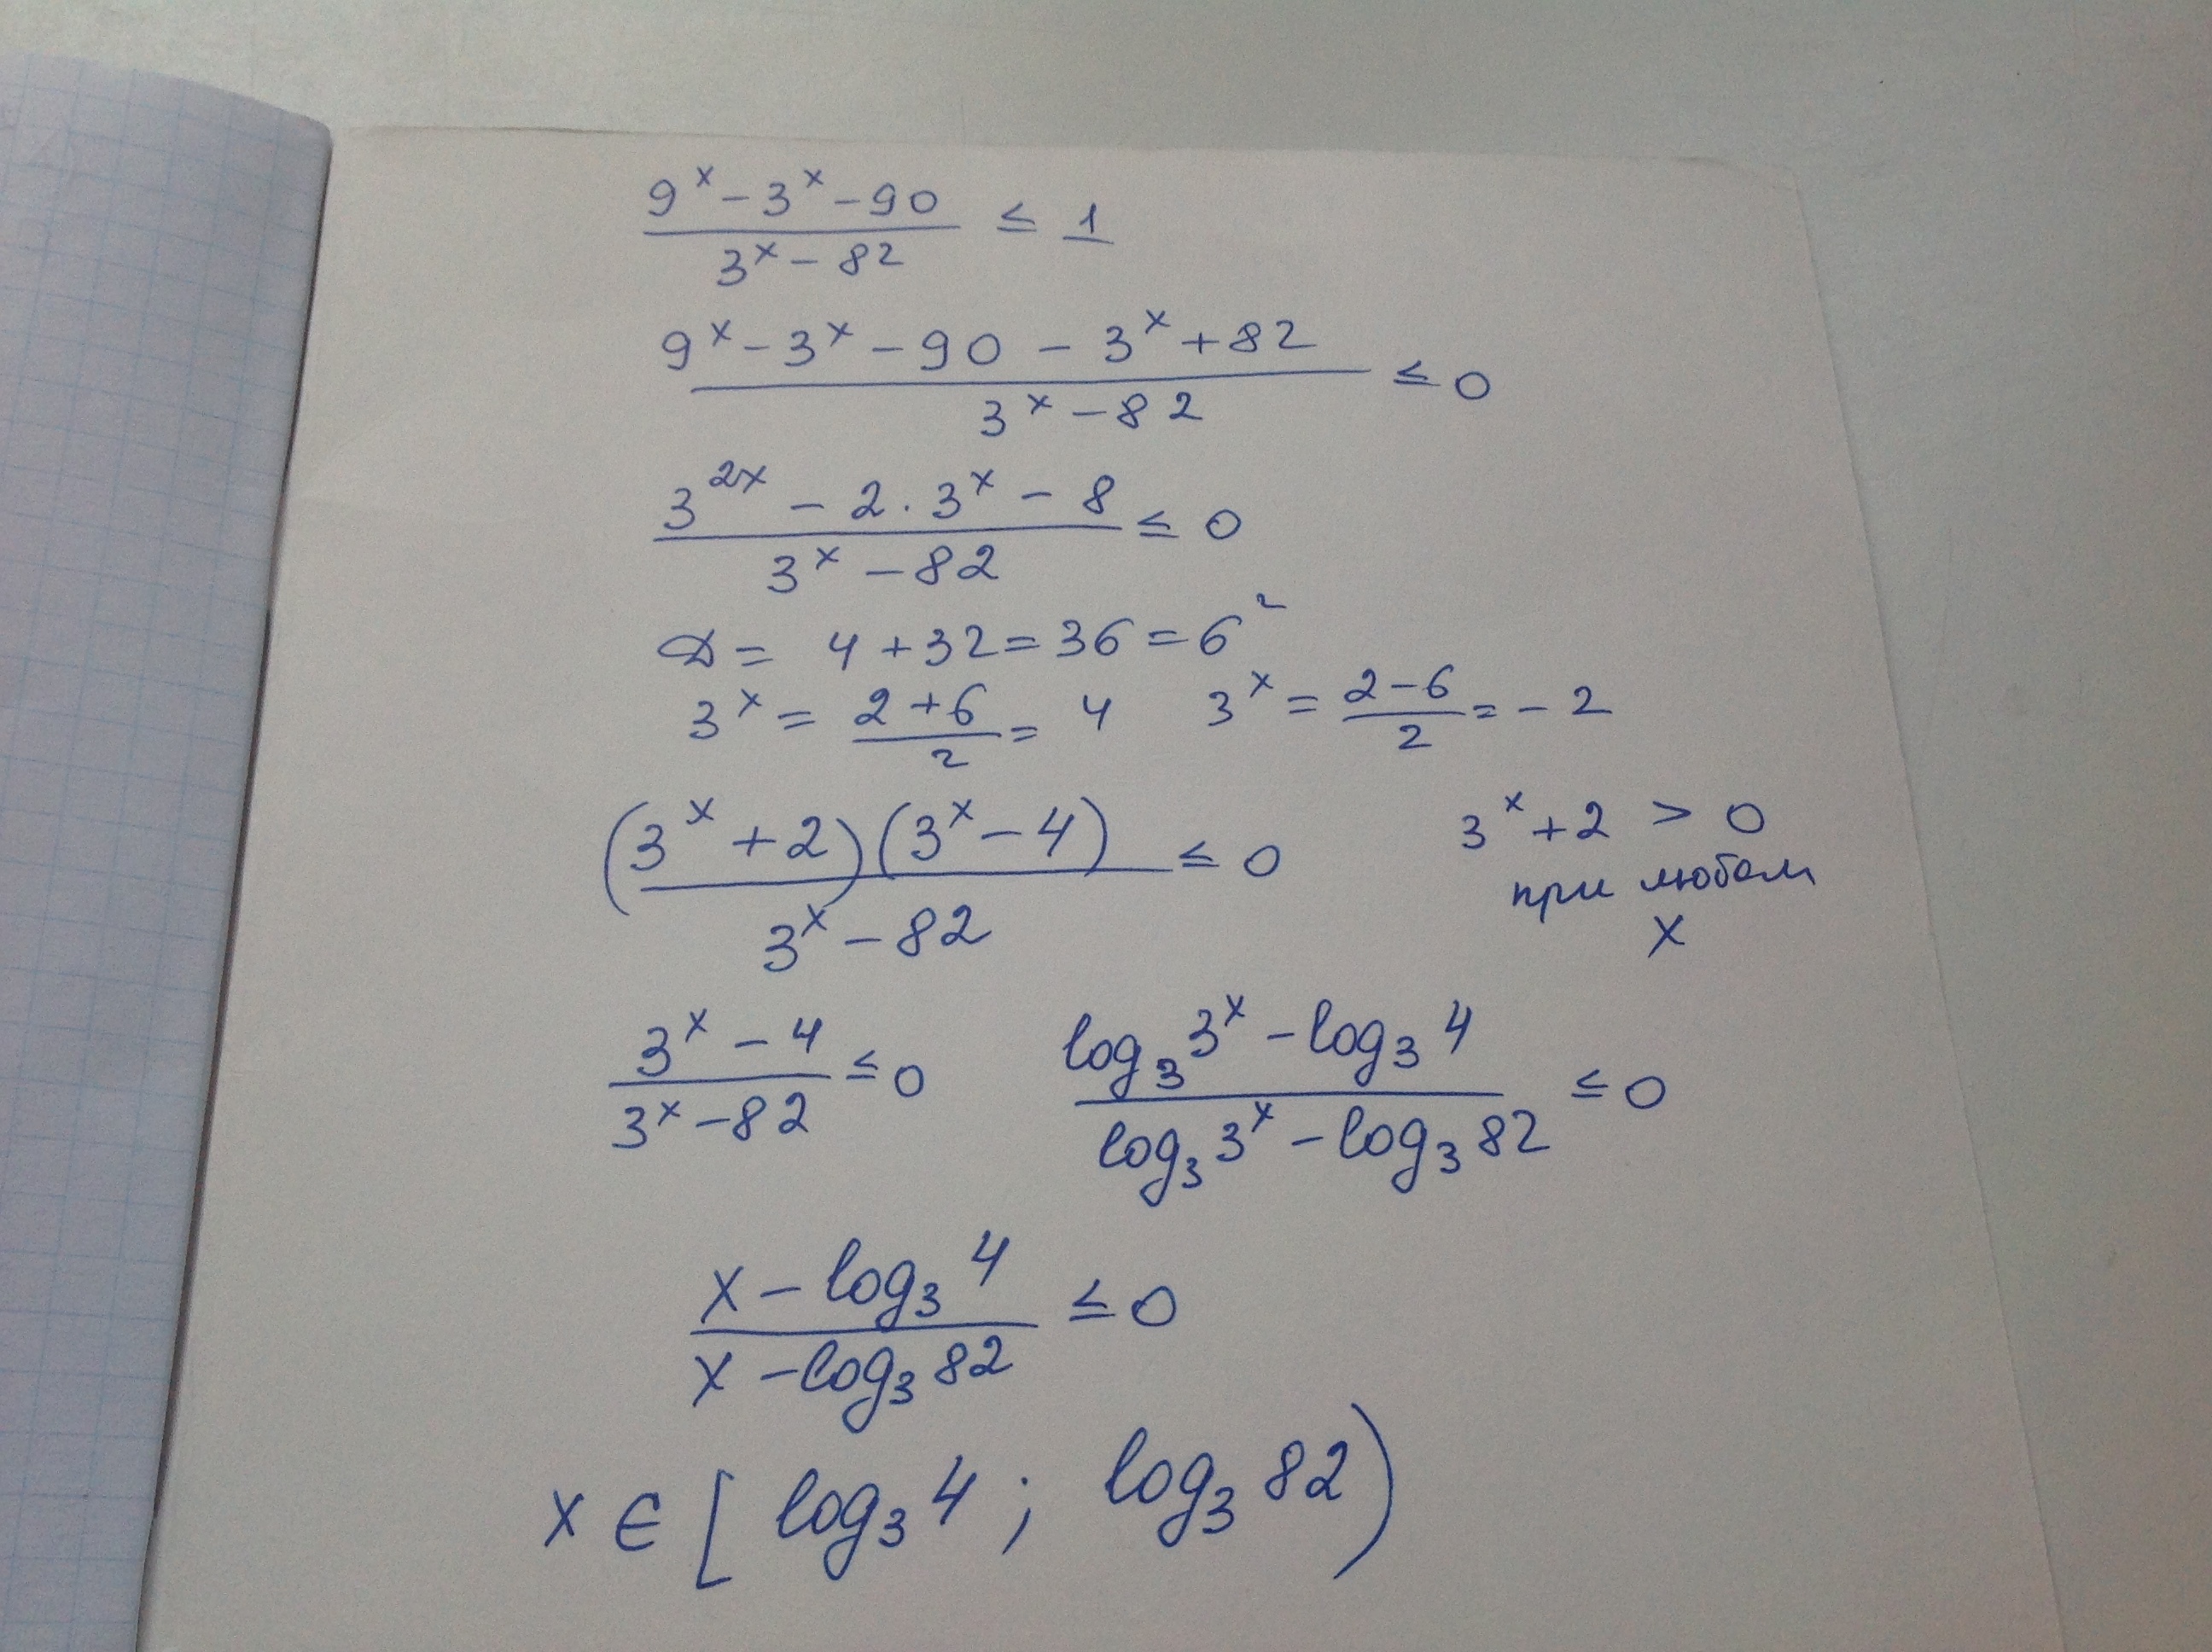 (9^x - 3^x - 90)/(3^x - 82) ≤ 1
(9^x - 3^x - 90 - 3^x + 82)/(3^x - 82) ≤ 0
(3^{2x} - 2 · 3^x - 8)/(3^x - 82) ≤ 0
D = 4 + 32 = 36 = 6^2
3^x = (2 + 6)/2 = 4 3^x = (2 - 6)/2 = -2
((3^x + 2)(3^x - 4))/(3^x - 82) ≤ 0
3^x + 2 > 0
при любом
x
(3^x - 4)/(3^x - 82) ≤ 0 (log_3 3^x - log_3 4)/(log_3 3^x - log_3 82) ≤ 0
(x - log_3 4)/(x - log_3 82) ≤ 0
x ∈ [log_3 4; log_3 82)